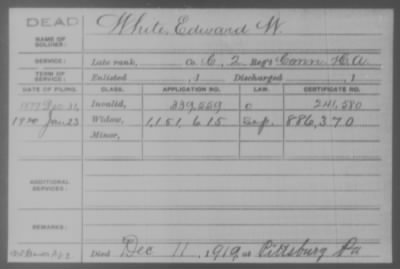 DEAD
NAME OF SOLDIER: White, Edward W.
SERVICE: Late rank, Co. C, 2 Reg't Conn. H.A.
TERM OF SERVICE: Enlisted , 1 Discharged , 1
DATE OF FILING. CLASS. APPLICATION NO. LAW. CERTIFICATE NO.
1879 Dec 31, Invalid, 339,559 241,580
1920 Jan 23 Widow, 1,151,615 886,370
Minor,
ADDITIONAL SERVICES:
REMARKS:
Died Dec 11, 1919, at Pittsburg Pa